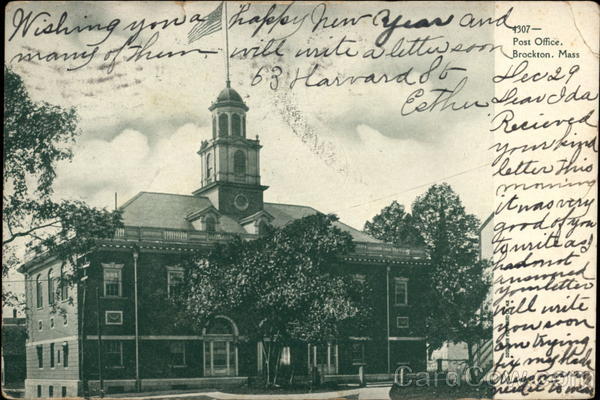 Wishing you a Happy New Year and
many of them. will write a letter soon
63 Harvard St
Esther
4307—
Post Office,
Brockton, Mass
Dec 29
Dear Ida
Recieved
your kind
letter this
morning
it was very
good of you
to write as I
had not
answered
your letter
will write
you soon
am trying
fix my
CardCow.com